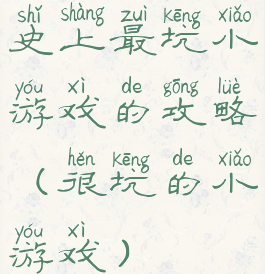 shǐ shàng zuì kēng xiǎo
史上最坑小
yóu xì de gōng lüè
游戏的攻略
hěn kēng de xiǎo
(很坑的小
yóu xì
游戏)